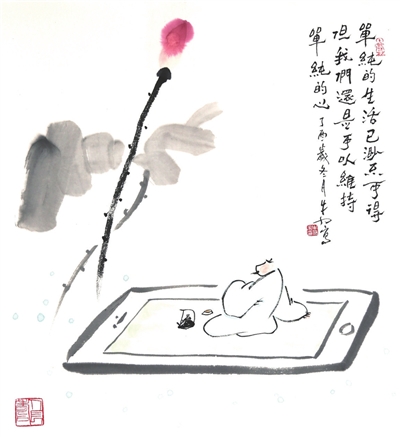 單純的生活已渺不可得
但我們還是可以維持
單純的心 丁酉歲冬月